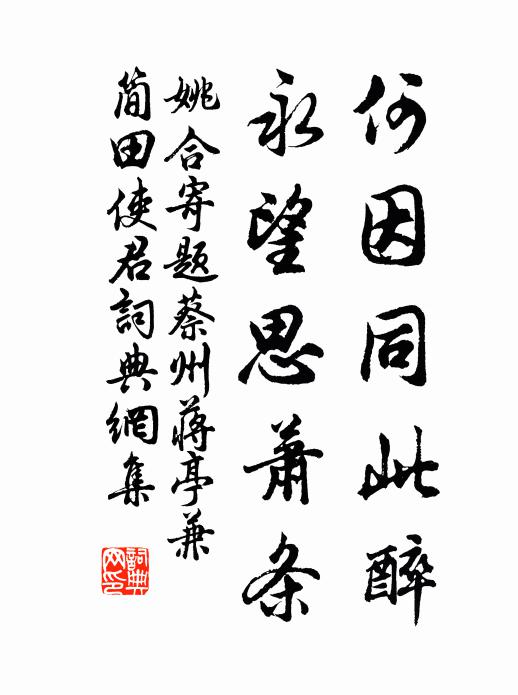 何因同此醉
永望思萧条
姚合寄题蔡州蒋亭兼
简田使君詞典網集
詞典網印